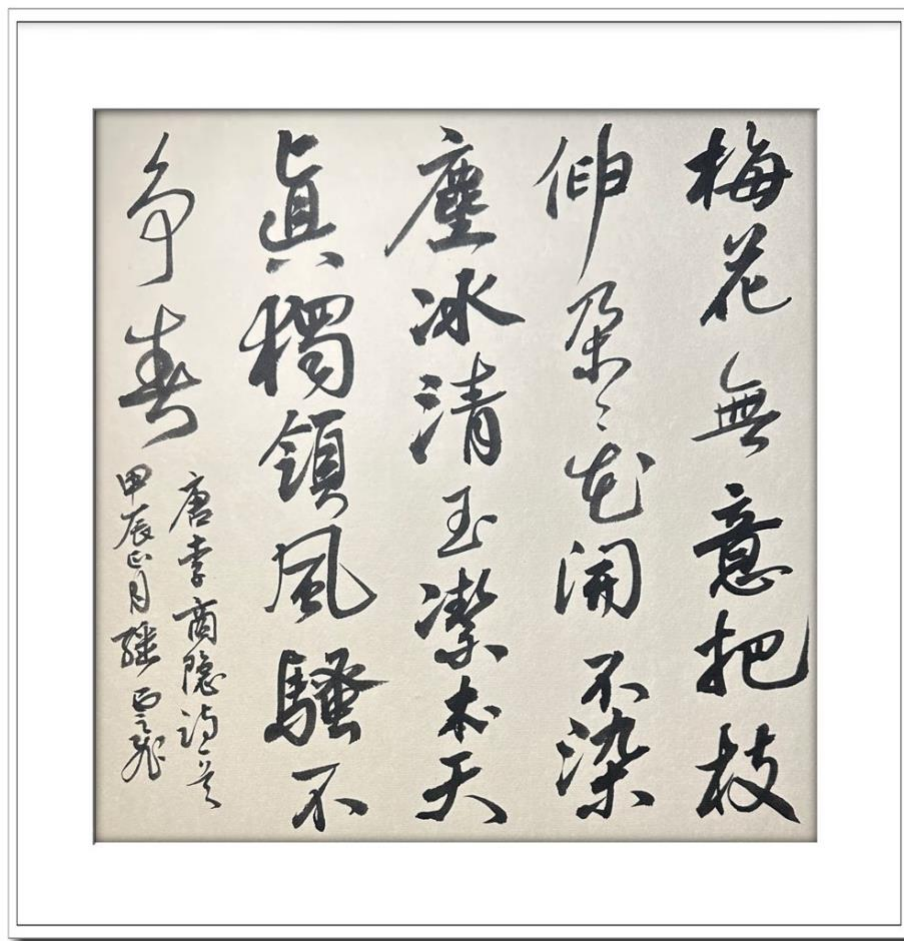 梅花無意把枝
伸朵々花開不染
塵冰清玉潔本天
真獨領風騷不
争春
唐李商隱詩一首
甲辰正月